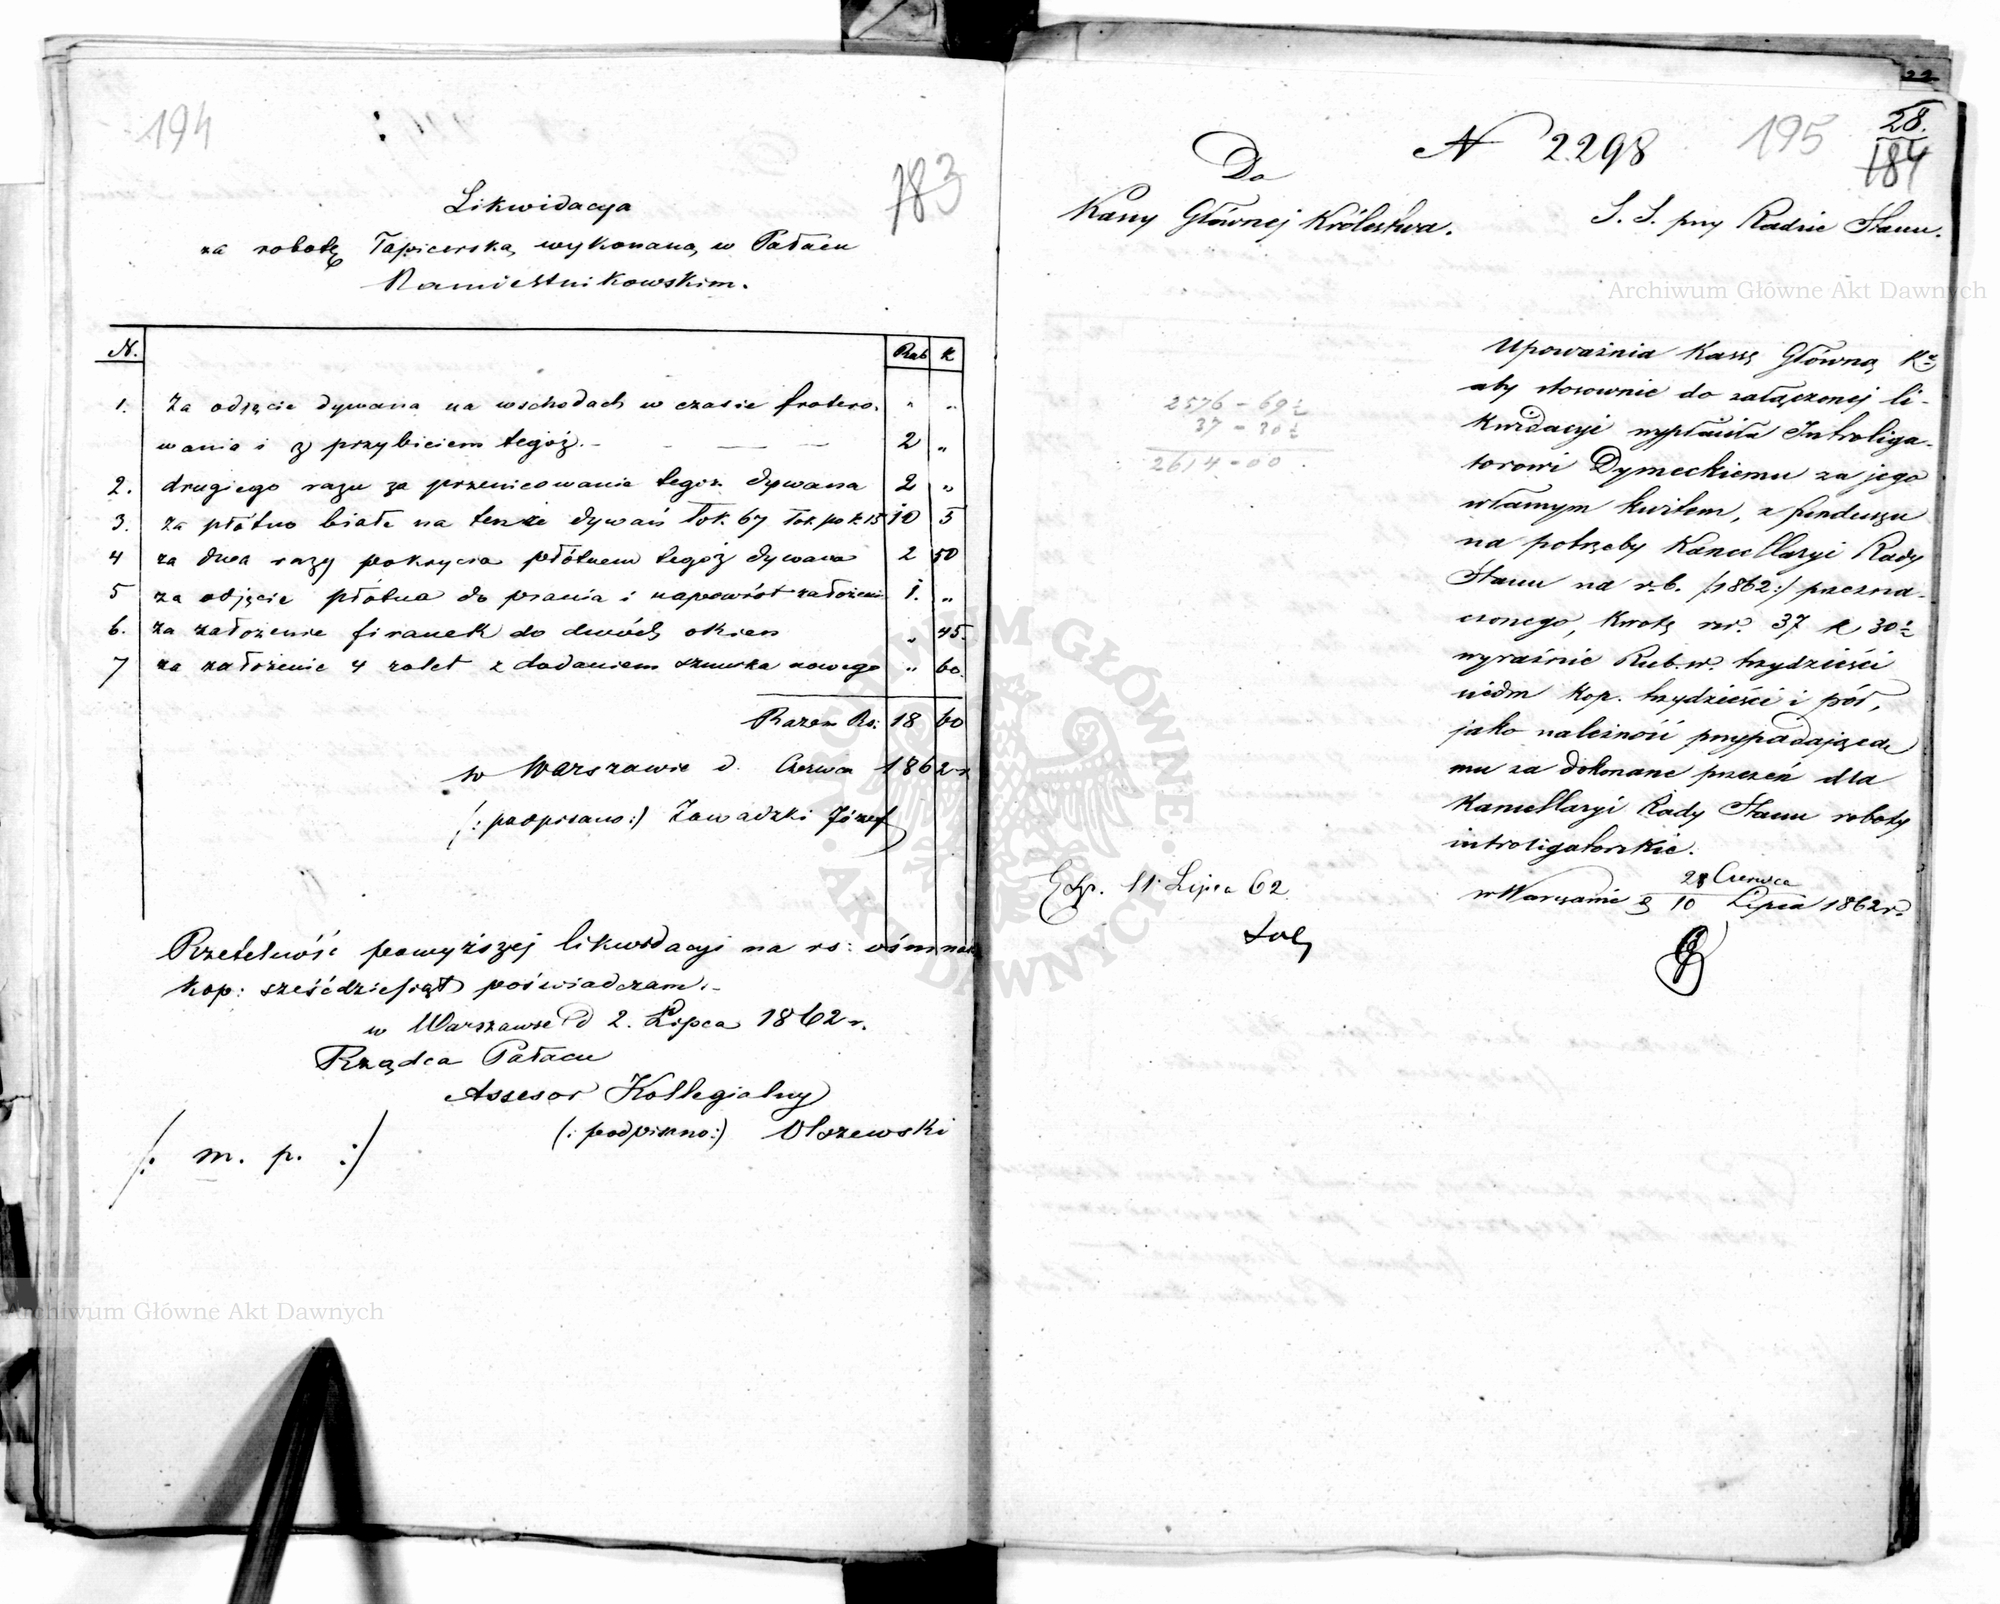 194
183
Likwidacya
za robotę Tapicerską, wykonaną w Pałacu
Namiestnikowskim.
N. Rub k
1. Za odjęcie dywana na wschodach w czasie frotero- " "
wania i z przybiciem tegóż. - 2 "
2. drugiego razu za przenicowanie tegoż dywana 2 "
3. za płótno białe na tenże dywan łok. 67 łok. po k 15 10 5
4 za dwa razy pokrycia płótnem tegóż dywana 2 50
5 za odjęcie płótna do prania i napowrót założenie 1. "
6. za założenie firanek do dwóch okien " 45.
7 za założenie 4 rolet z dodaniem sznurka nowego " 60.
Razem Rs: 18 60
w Warszawie d. Czerwca 1862 r
/: podpisano :/ Zawadzki Józef
Rzetelność powyższej likwidacyi na rs: ośmnaście
kop: sześćdziesiąt poświadczam.-
w Warszawie d 2. Lipca 1862 r.
Rządca Pałacu
Assesor Kollegialny
(: podpisano :) Olszewski
/: m. p. :/
195
28.
184
N 2298
Do
Kassy Głównej Królestwa.
S. S. przy Radzie Stanu.
2576 - 69½
37 - 30½
2614 - 00.
Upoważnia Kassę Główną Kr.
aby stosownie do załączonej li-
kwidacyi wypłaciła Introliga-
torowi Dymeckiemu za jego
własnym kwitem, z funduszu
na potrzeby Kancellaryi Rady
Stanu na r. b. /:1862:/ przezna-
czonego, kwotę rsr. 37 k 30½
wyraźnie Rub. sr. trzydzieści
siedm kop. trzydzieści i pół,
jako należność przypadającą
mu za dokonane przezeń dla
Kancellaryi Rady Stanu roboty
introligatorskie.
w Warszawie d 28 Czerwca / 10 Lipca 1862 r.
Exp. 11 Lipca 62
Archiwum Główne Akt Dawnych
Archiwum Główne Akt Dawnych
ARCHIWUM GŁÓWNE AKT DAWNYCH